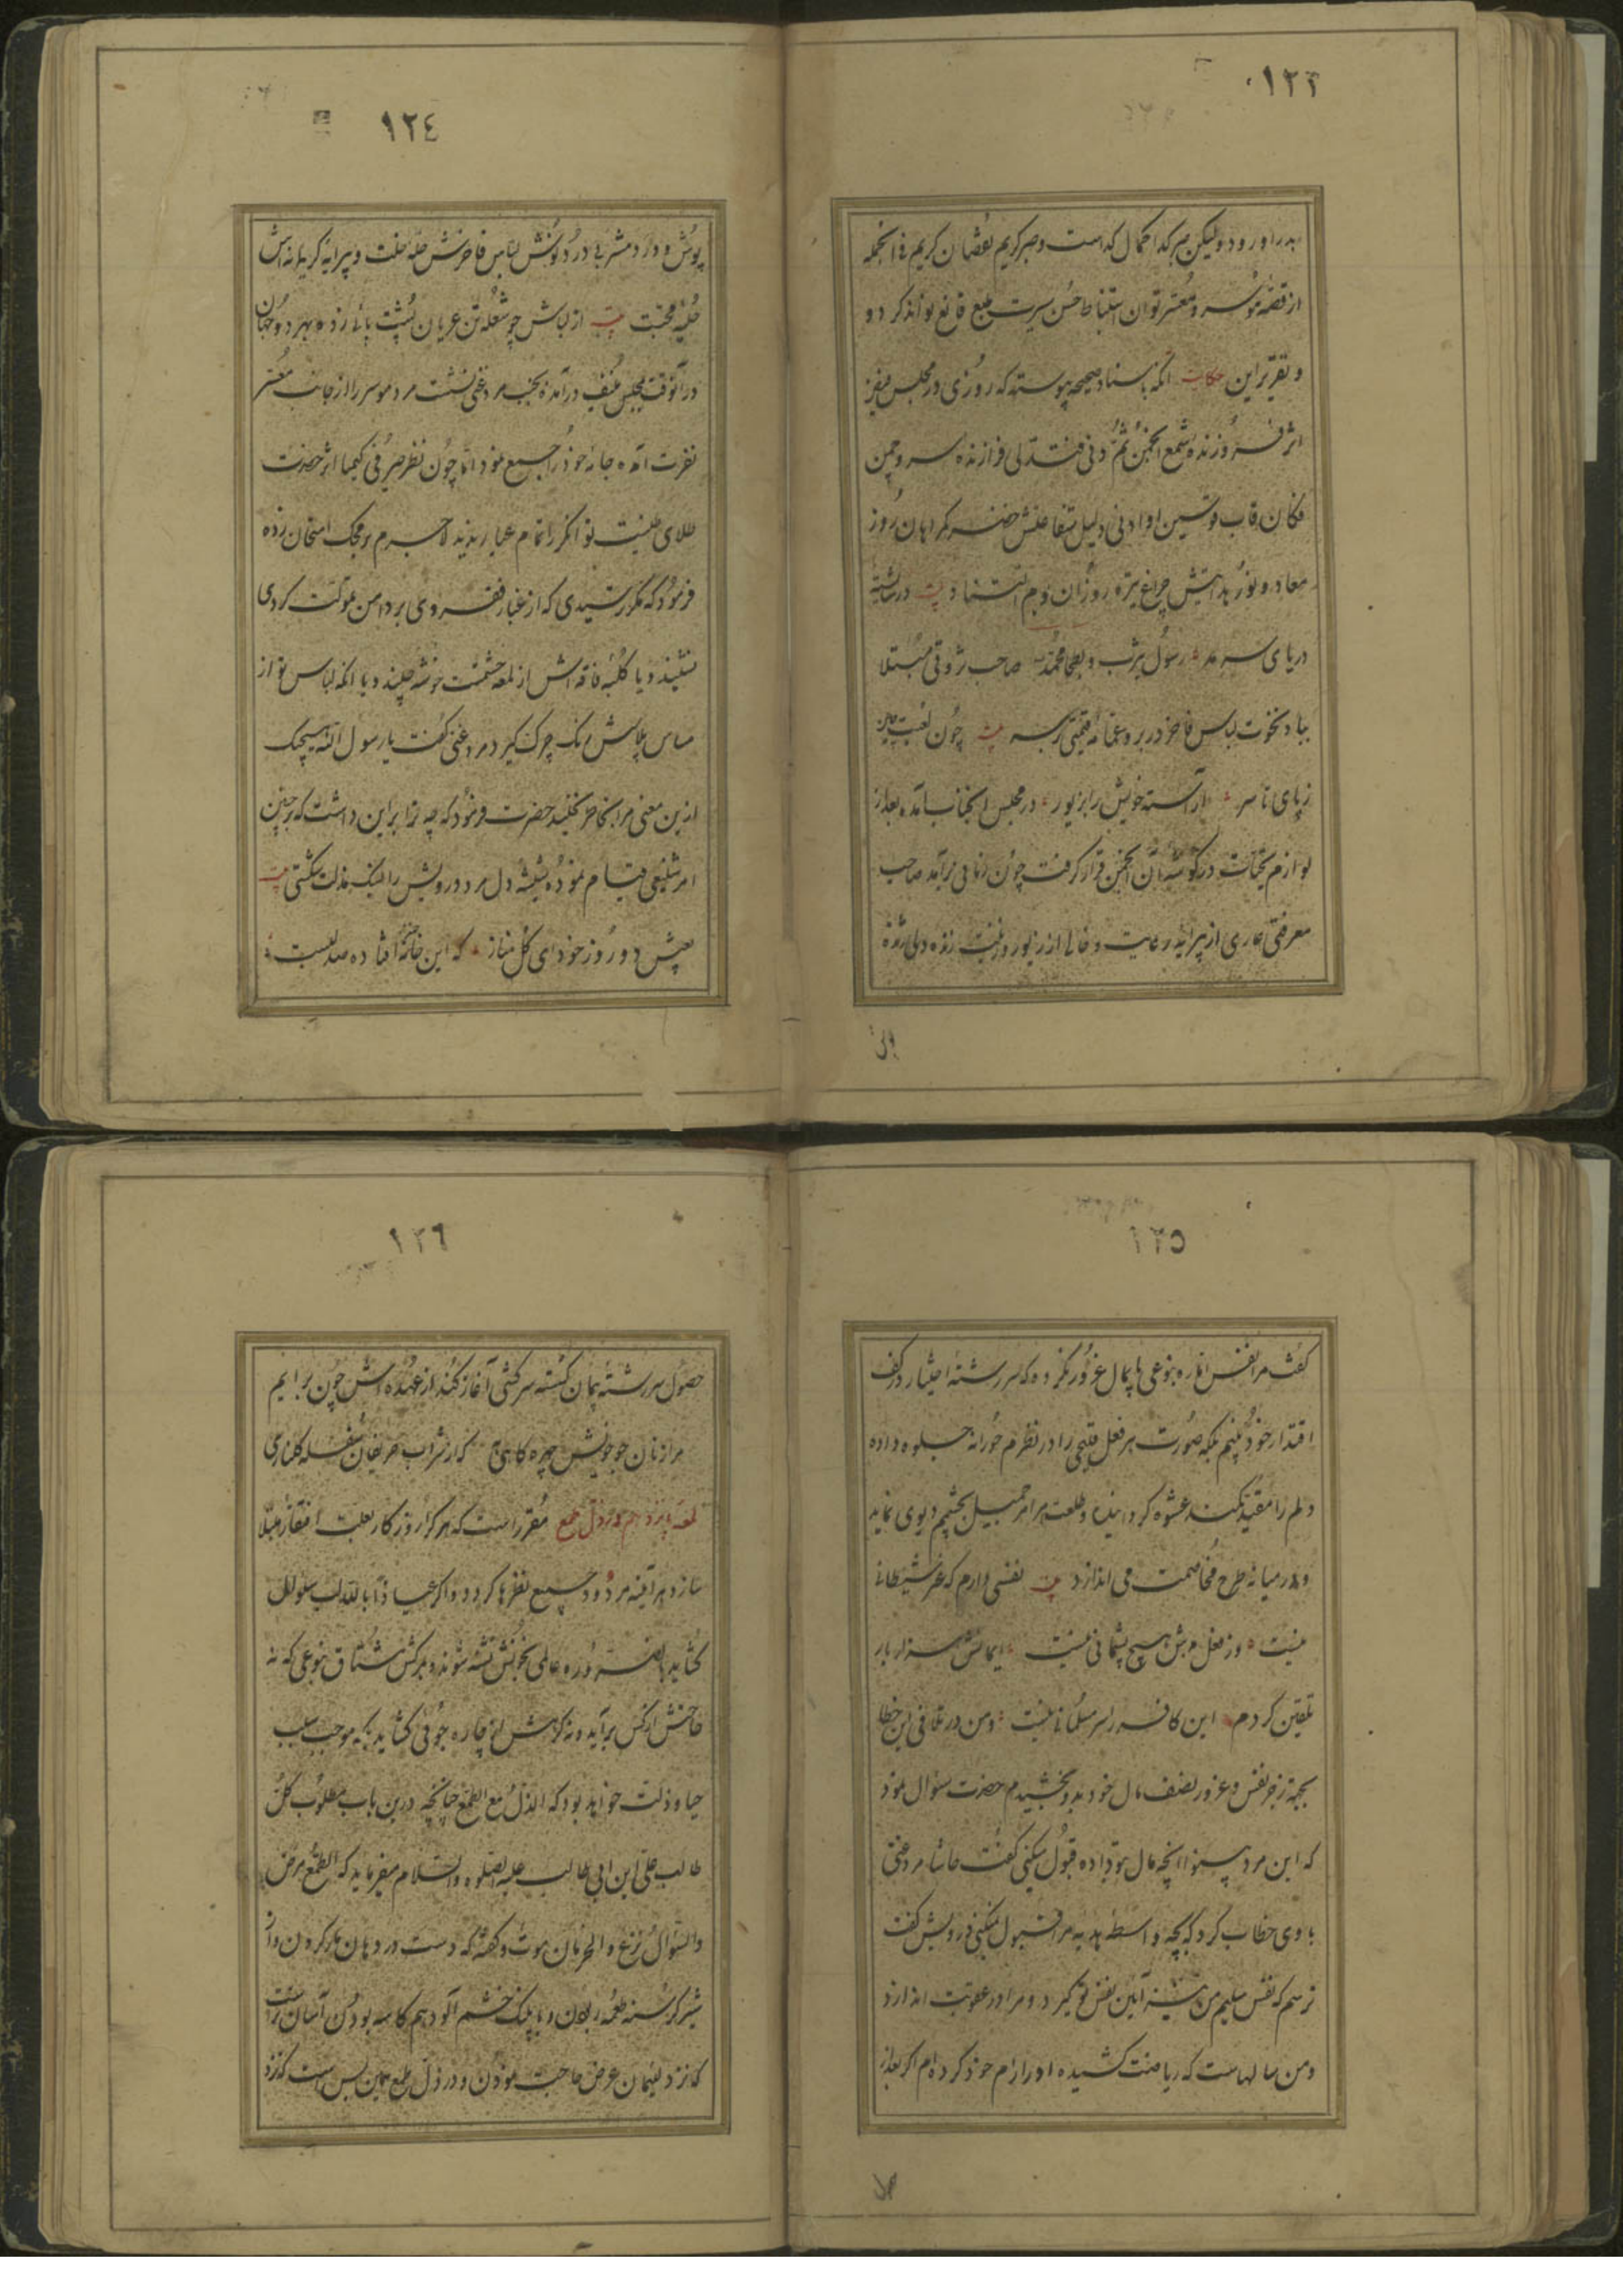 ۱۲۳
بدر او رود و لیکن صبر گدا کمال گداست و صبر کریم نقصان کریم فی الجمله
از قصه موسر و معسر توان استنباط حسن سیرت طبع قانع بو اند کر دو
و تقریر این حکایت آنکه باسناد صحیحه پیوسته که روزی در مجلس فیض
اثر فروزنده شمع انجمن ثم دنی فتدلی فرازنده سرو چمن
فکان قاب قوسین او ادنی دلیل شفاعتش خضر گمراهان روز
معاد و نور هدایتش چراغ تیره روزان یوم التناد بیت در شانیه
دریای سرمد رسول یثرب و بطحا محمد صاحب ثروتی مبتلا
بباد نخوت لباس فاخر در بر و عمامه قیمتی بر سر بیت چون لعبت چین
ز پای تا سر آراسته خویش را بزیور در مجلس آنجناب آمده بعد از
لوازم تحیات در گوشه آن انجمن قرار گرفت چون زمانی برآمد صاحب
معرفتی عاری از پیرایه رعایت و خالی از زیور و زینت زنده دلی ژنده
پوش
۱۲٤
پوش و درد مشربی درد نوش لباس فاخرش حله خلت و پیرایه کریمانه اش
حلیه محبت بیت از لباش چو شعله تن عریان پشت پائی زده بهر دو جهان
در آنوقت بمجلس منیف درآمده بجنب مرد غنی نشست مرد موسر را از جانب معسر
نفرت آمده جامه خود را جمع نمود اما چون نظر صیرفی کیمیا اثر حضرت
طلای طینت توانگر را تمام عیار ندید لاجرم بر محک امتحان زده
فرمود که مگر ترسیدی که از غبار فقر وی بر دامن ملوکت گردی
نشیند و یا کلبه فاقه اش از لمعه حشمت خوشه چیند و یا آنکه لباس تو از
مساس پلاسش رنگ چرک گیرد مرد غنی گفت یا رسول الله هیچیک
ازین معنی مرا بخاطر نخلید حضرت فرمود که چه ترا براین داشت که بر چنین
امر شنیعی قیام نموده شیشه دل مرد درویش را بسنگ مذلت شکستی بیت
بعیش دو روز خود ای گل مناز که این خانه افتاده صد لعبست
۱۲٥
گفت مرا نفس اماره بنوعی پایمال غرور نکرده که سررشته اختیار در کف
اقتدار خود بینم بلکه صورت هر فعل قبیحی را در نظرم حورانه جلوه داده
دلم را مقید بکمند عشوه گردانیده و طلعت هر امر جمیل بچشم دیوی نماید
و در میانه طرح مخاصمت می اندازد بیت نفسی دارم که غیر شیطانی
نیست وز فعل بدش هیچ پشیمانی نیست ایمانش هزار بار
تلقین کردم این کافر را سر مسلمانی نیست و من در تلافی این خطا
بجهة زجر نفس و غرور نصف مال خود بدو بخشیدم حضرت سئوال نمود
که ای مرد پیرهنوا آنچه مال بتو داده قبول میکنی گفت حاشا مرد غنی
با وی خطاب کرد که بچه واسطه هدیه مرا قبول نمیکنی درویش گفت
ترسم که نفس سلیم من شیشه آئین نفس تو گیرد و مرا در عقوبت اندازد
و من سالهاست که ریاضت کشیده او را رام خود کرده ام اگر بعد از
حصول
۱۲٦
حصول سررشته پیمان گسسته سرکشی آغاز کند از عهده اش چون برایم
مرا زنان جو خویش چهره کاهی به که از شراب حریفان سفله گلناری
لمعه پانزدهم در ذل طمع مقرر است که هر که را روزگار بعلت افتقار مبتلا
سازد هر آینه مردود جمیع نظرها گردد و اگر عیاذا بالله لب بسئوال
گشاید بالضروره عالمی بخونش تشنه شوند و بمرگش مشتاق بنوعی که نه
حاجتش از کس برآید و نه گرهش از چاره جوئی گشاید بلکه موجب سلب
حیا و ذلت خواهد بود که الذل مع الطمع چنانچه درین باب مطلوب کل
طالب علی ابن ابی طالب علیه الصلوة والسلام میفرماید که الطمع مرض
والسؤال نزع والحرمان موت و گفته که دست در دهان مار کردن و از
شیر گرسنه طعمه ربودن و با پلنگ خشم آلود هم کاسه بودن آسان تر است
که نزد لئیمان عرض حاجت نمودن و در ذل طمع همین بس است که نزد